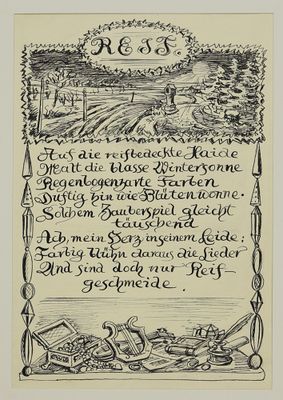 REIF.
Auf die reifbedeckte Haide
Malt die blasse Wintersonne
Regenbogenzarte Farben
Duftig hin wie Blütenwonne.
Solchem Zauberspiel gleicht
täuschend
Ach, mein Herz in seinem Leide;
Farbig blühn daraus die Lieder
Und sind doch nur Reif-
geschmeide.